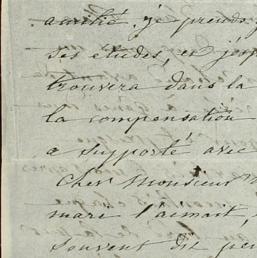 amitié. je prends
ses études, et j'es
trouvera dans la
la compensation
a supporté avec
Cher Monsieur
mare l'aimait,
souvent dit